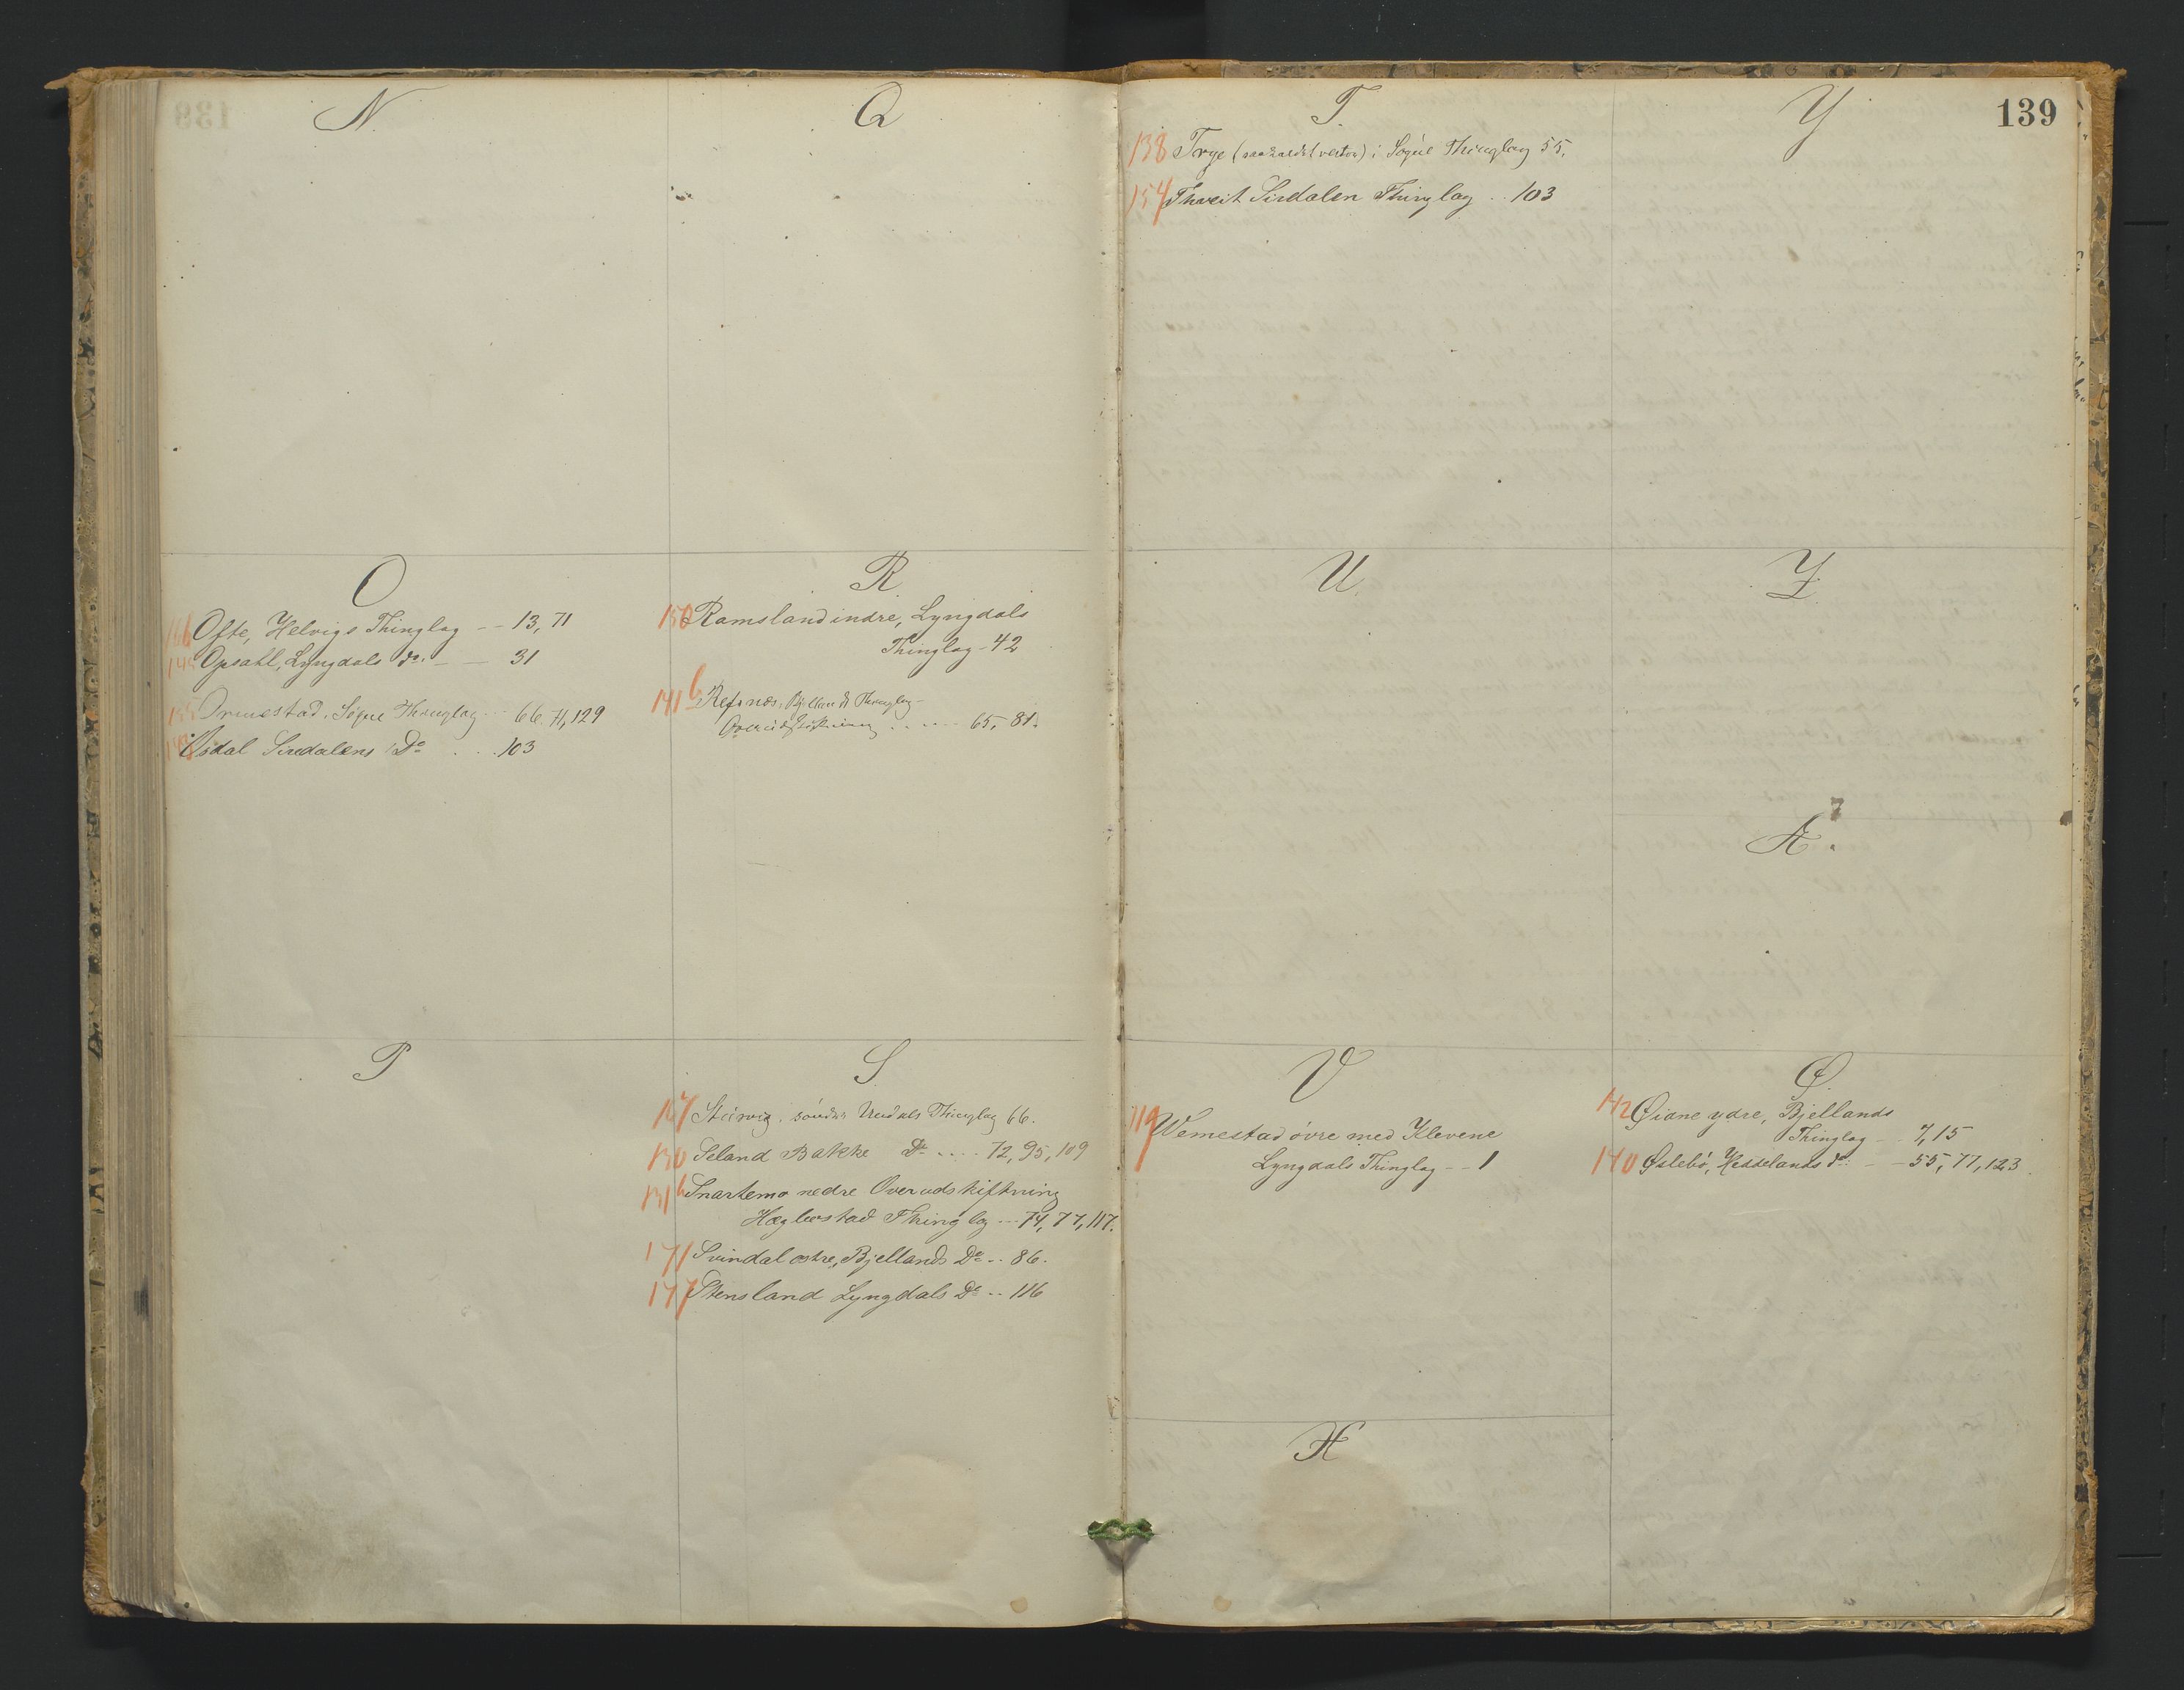 N.
O
166 Ofte, Helvigs Thinglag -- 13, 71
Opsahl, Lyngdals do. — — 31
Ormestad, Søgne Thinglag -- 66. 71, 129
Osdal Siredalens Do . . . 103
P
Q
R.
150 Ramsland indre, Lyngdals
Thinglag - 42
141 b Refsnes, Bjellands Thinglag -
Overudskiftning . . . . . 65, 81.
S
søndre Undals Thinglag 66.
130 Seland Bakke Do .... 72, 95, 109
131 b Snartemo nedre Overudskiftning
Hægbostad Thinglag --- 74, 77, 117.
171 Svindal østre, Bjellands Do .. 86.
147 Stensland Lyngdals Do .. 116
139
T.
138 Trye ( ) i Søgne Thinglag 55.
154 Thveit Sirdalen Thinglag .. 103
U.
V
119 Vemestad øvre med Klevene
Lyngdals Thinglag -- 1
X
Y
Z.
Æ.
Ø.
142 Øiane ydre, Bjellands
Thinglag — . 7, 15
140 Øslebø, Heddelands do. — - 55, 77, 123.